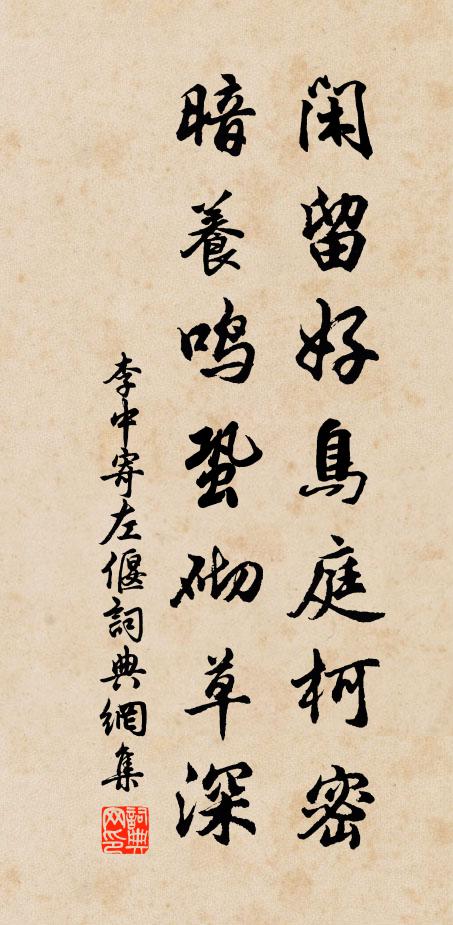 閑留好鳥庭柯密
暗養鳴蛩砌草深
李中寄左偃詞典網集
詞典网印